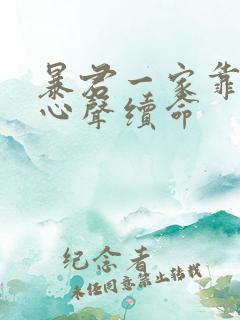 暴君一家靠
心聲續命
纪念着
未经同意禁止转载